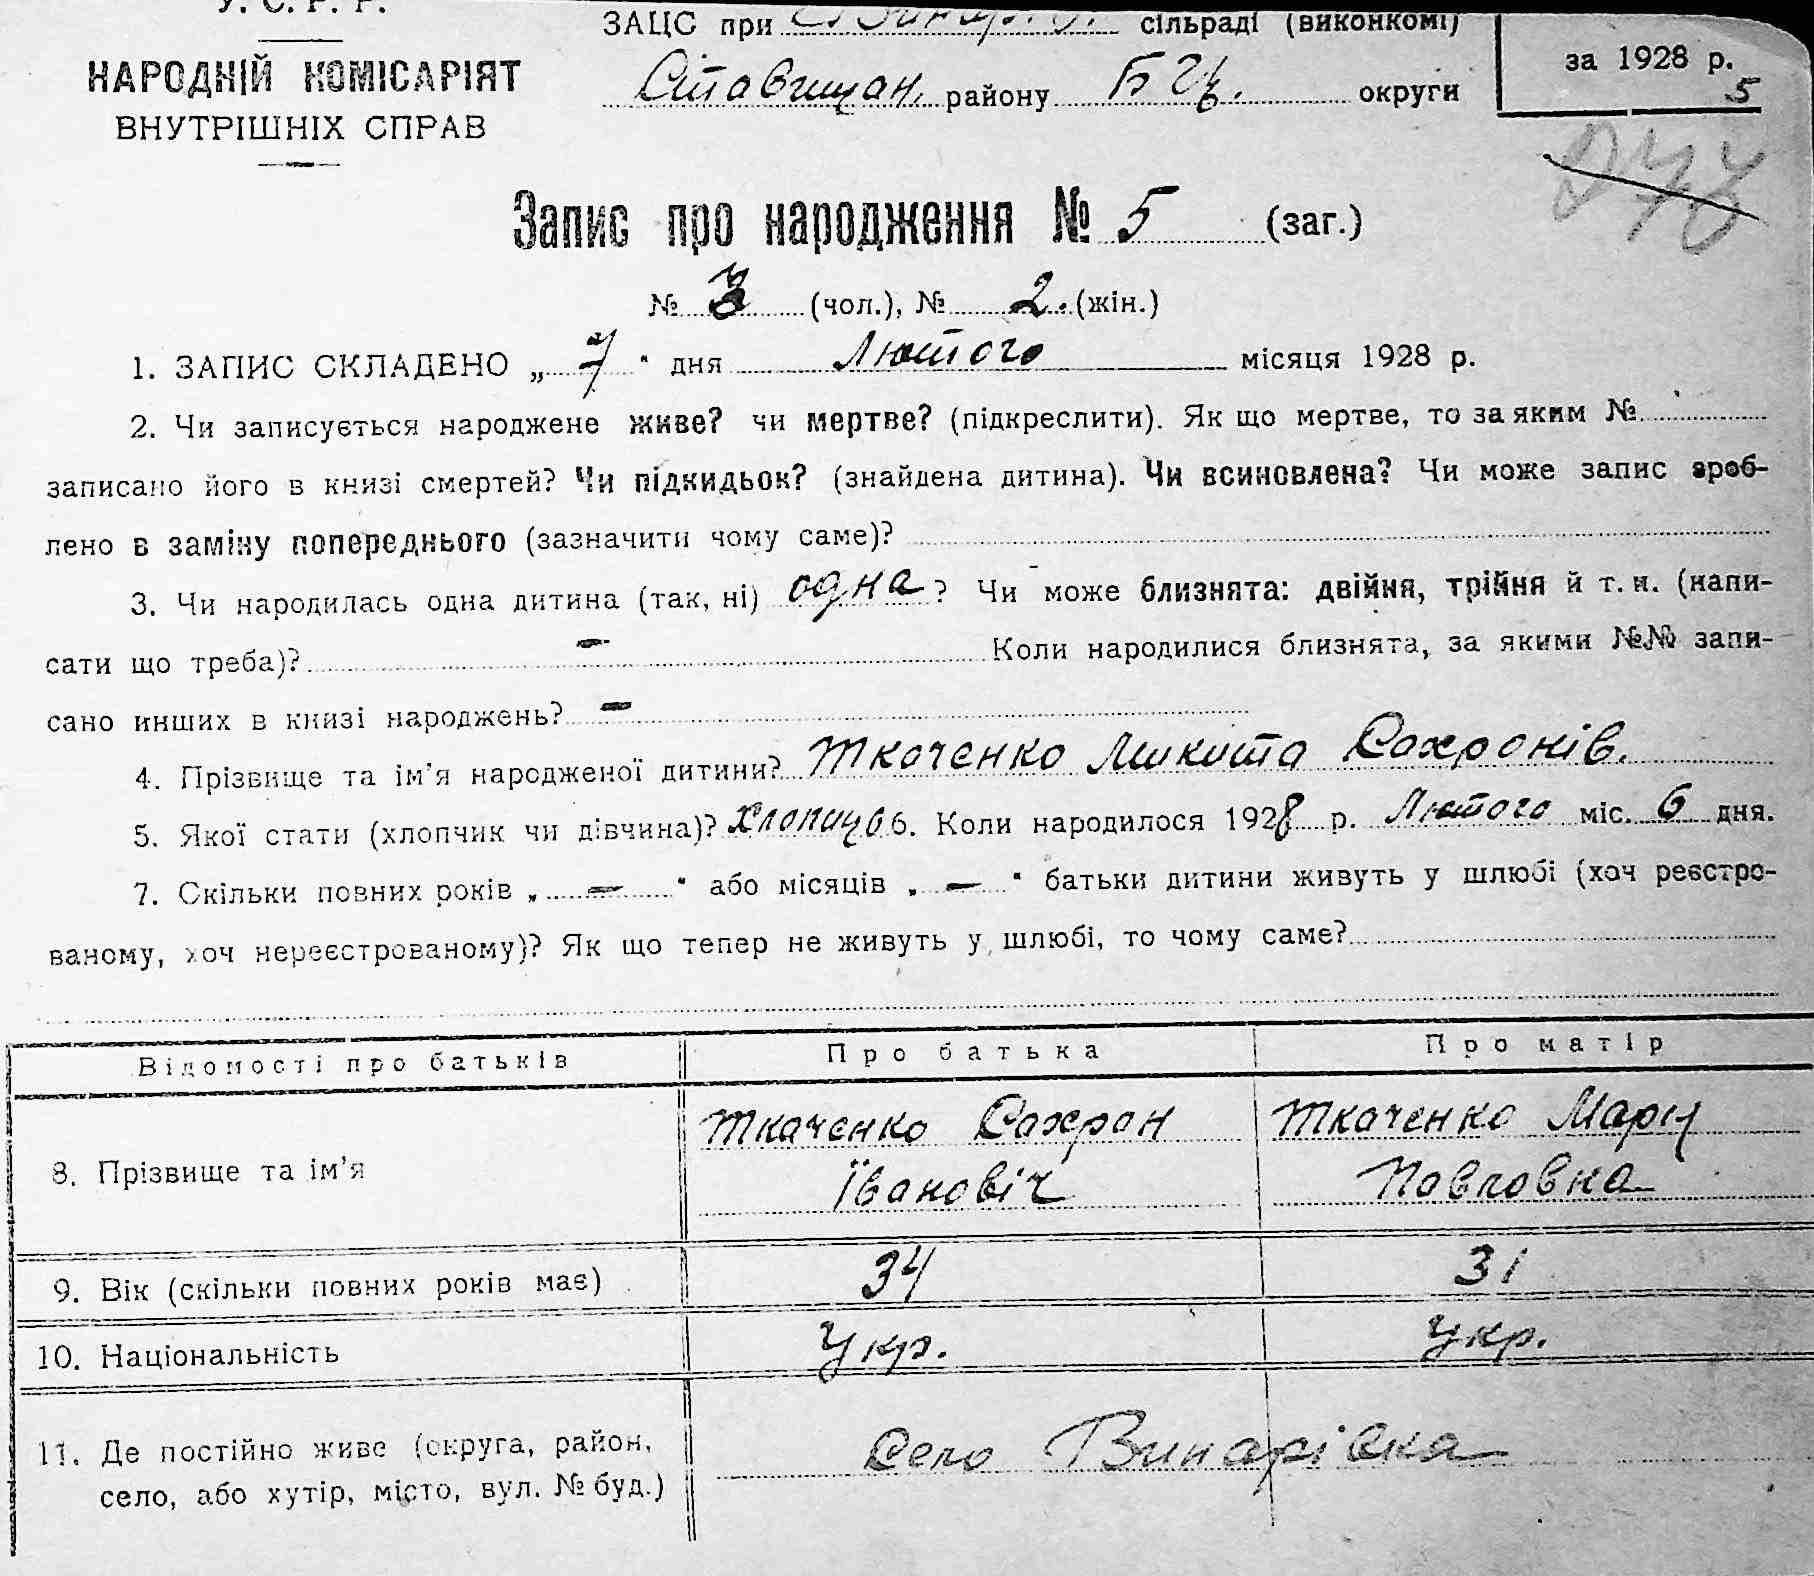 У. С. Р. Р.
НАРОДНІЙ КОМІСАРІЯТ
ВНУТРІШНІХ СПРАВ
ЗАЦС при сільраді (виконкомі)
Ставищан. району Б Ц. округи
за 1928 р.
5
Запис про народження № 5 (заг.)
№ 3 (чол.), № 2. (жін.)
1. ЗАПИС СКЛАДЕНО „ 7 " дня Лютого місяця 1928 р.
2. Чи записується народжене живе? чи мертве? (підкреслити). Як що мертве, то за яким №
записано його в книзі смертей? Чи підкидьок? (знайдена дитина). Чи всиновлена? Чи може запис зроб-
лено в заміну попереднього (зазначити чому саме)?
3. Чи народилась одна дитина (так, ні) одна ? Чи може близнята: двійня, трійня й т. и. (напи-
сати що треба)? — Коли народилися близнята, за якими №№ запи-
сано инших в книзі народжень? —
4. Прізвище та ім'я народженої дитини? Ткаченко Микита Сохронів.
5. Якої стати (хлопчик чи дівчина)? 6. Коли народилося 1928 р. Лютого міс. 6 дня.
7. Скільки повних років „ — " або місяців „ — " батьки дитини живуть у шлюбі (хоч реєстро-
ваному, хоч нереєстрованому)? Як що тепер не живуть у шлюбі, то чому саме?
Відомості про батьків Про батька Про матір
8. Прізвище та ім'я
Ткаченко Сохрон
Івановіч
Ткаченко Мари
Повловна
9. Вік (скільки повних років має) 34 31
10. Національність Укр. Укр.
11. Де постійно живе (округа, район,
село, або хутір, місто, вул. № буд.)
Село Винарівка